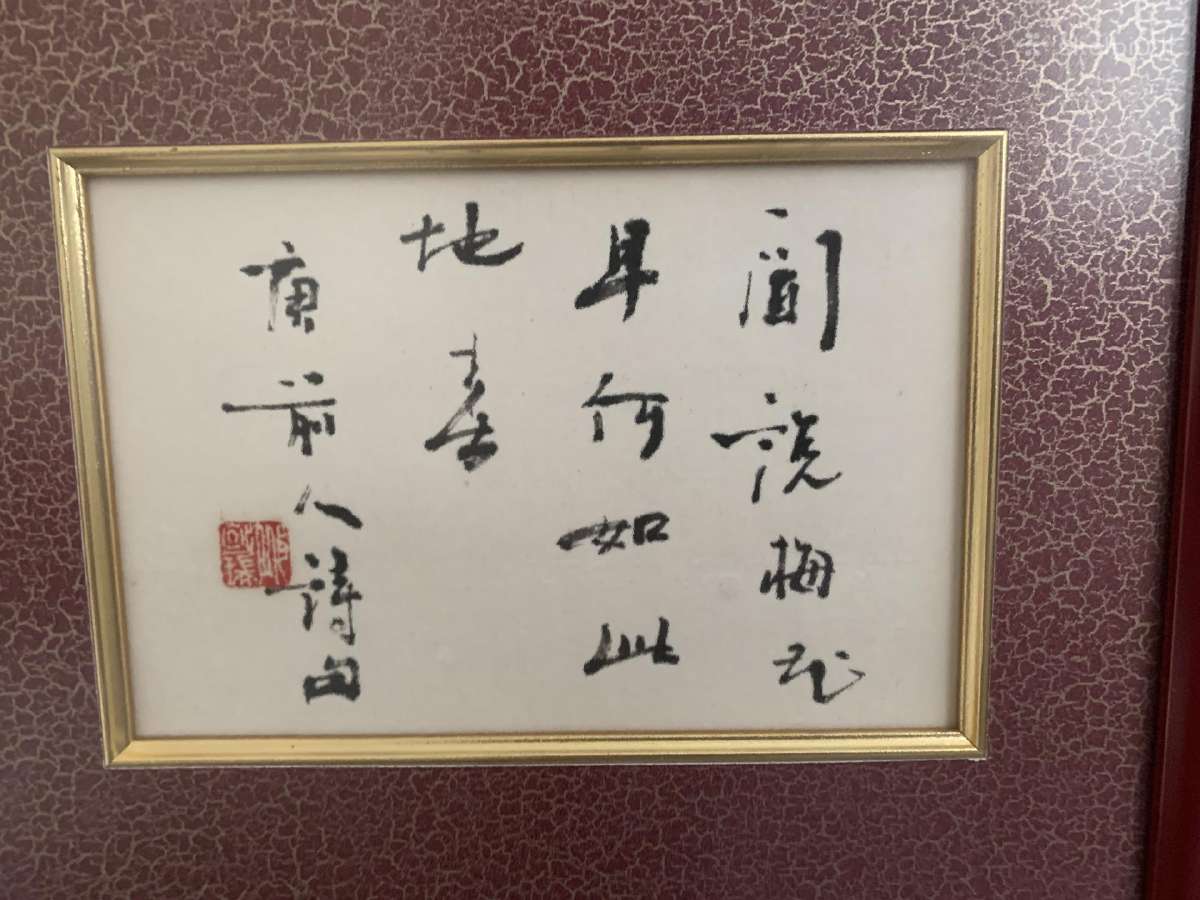 聞說梅花
早何如此
地春
唐前人詩句